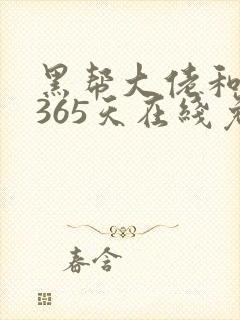 黑帮大佬和
365天在线免
春含